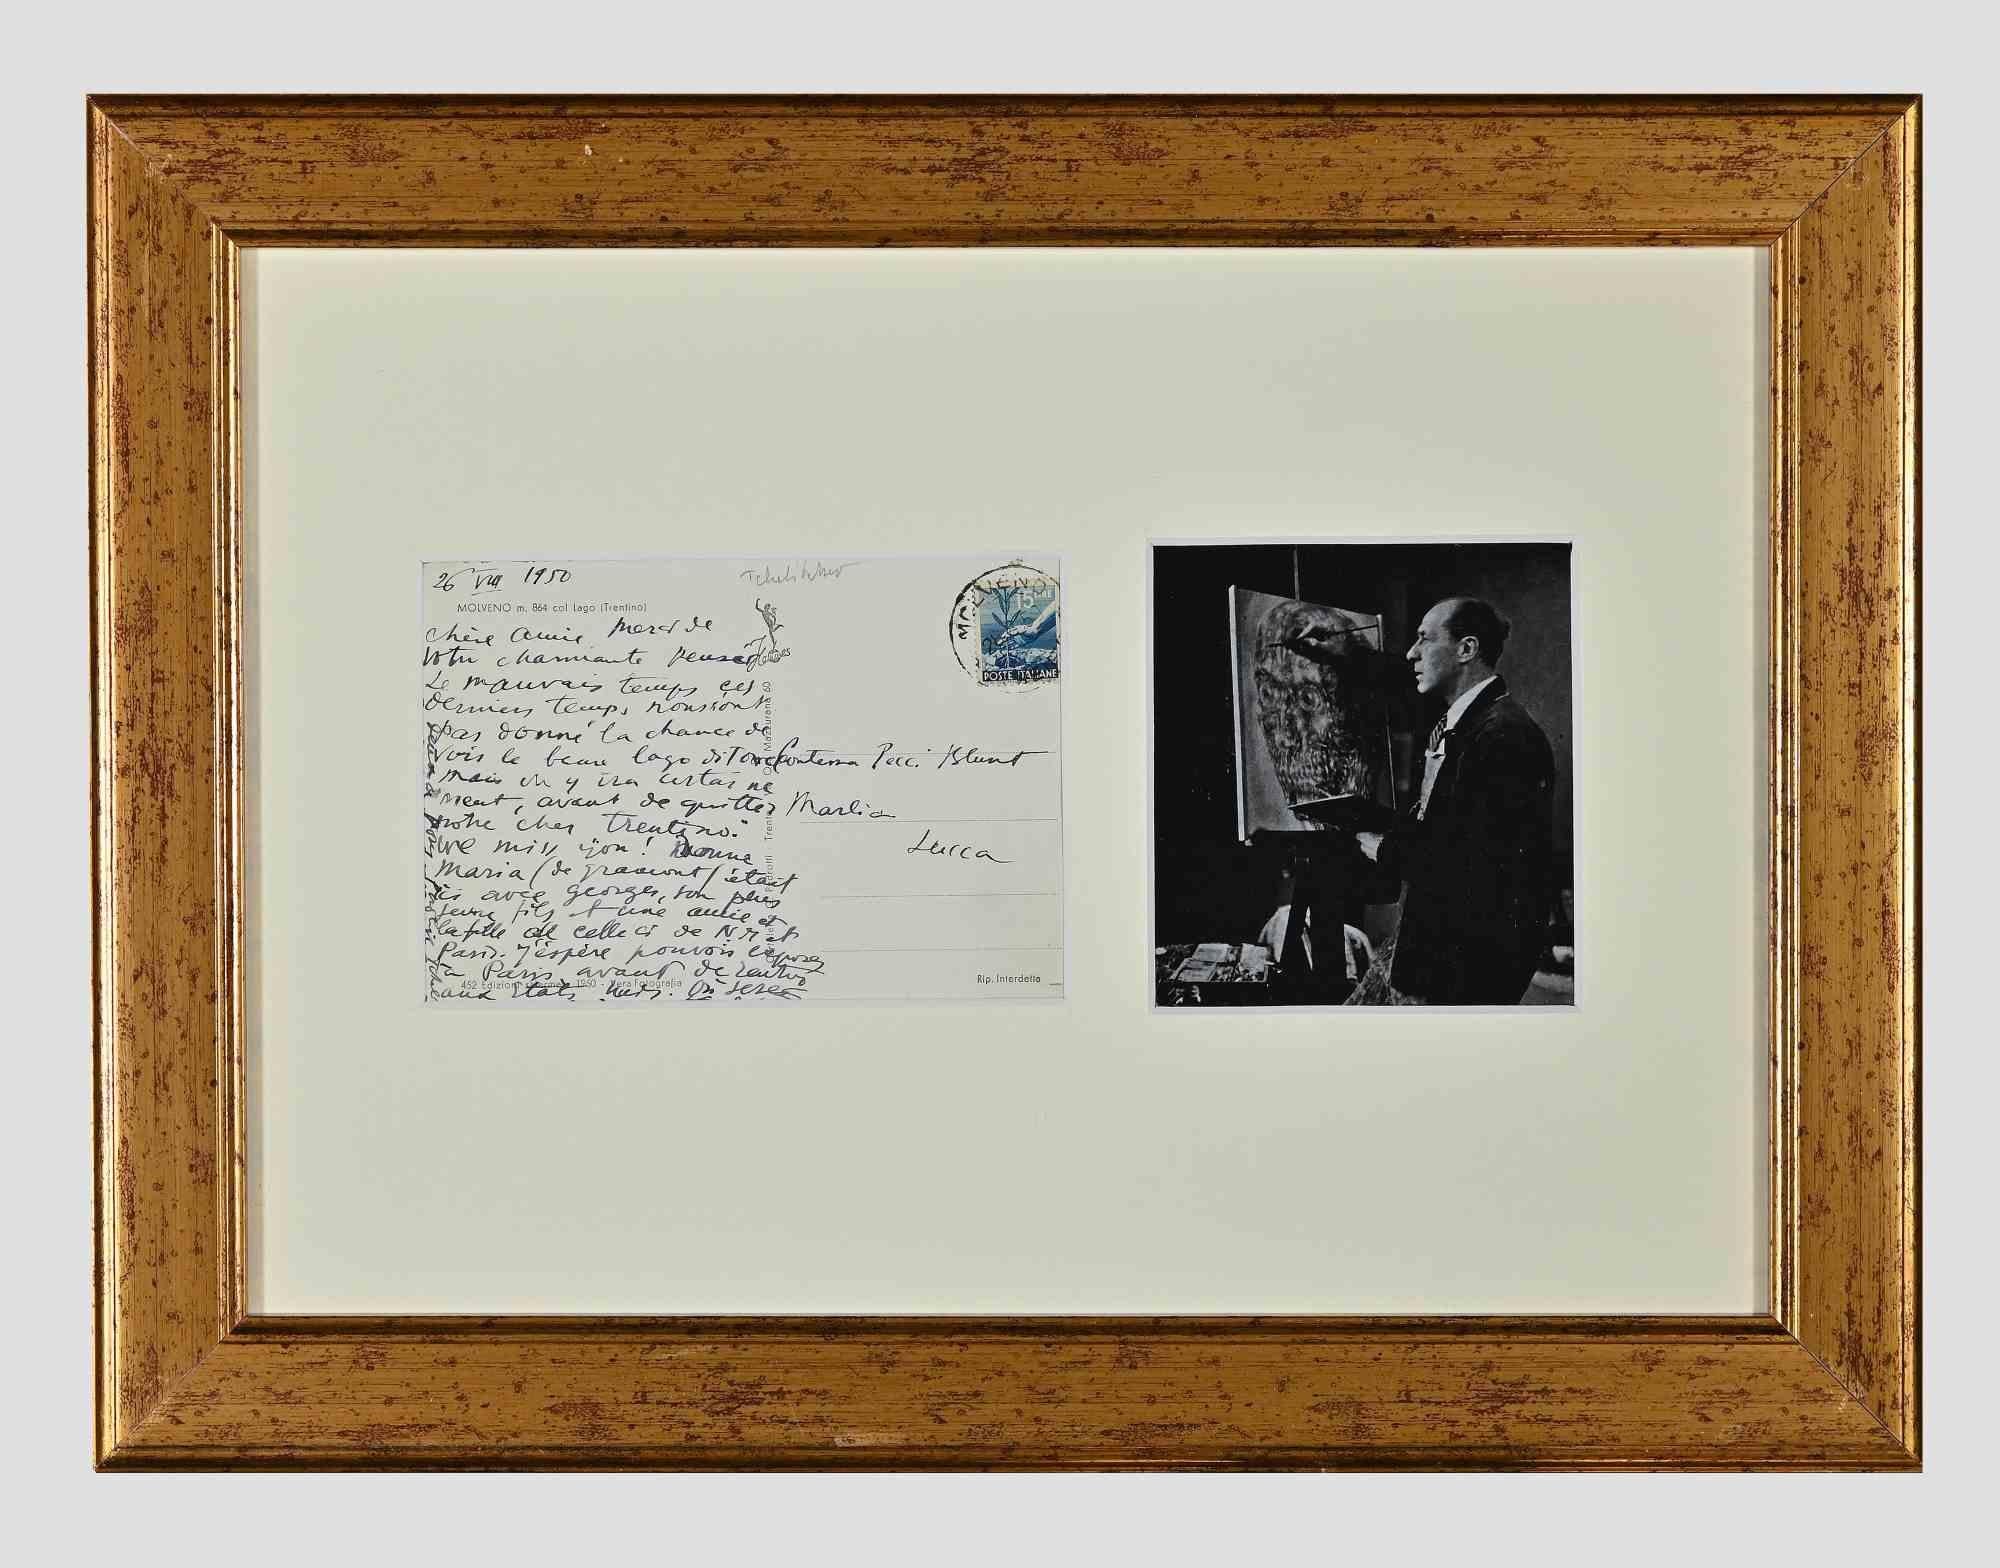 26 VIII 1950
Tchelitchew
MOLVENO m. 864 col Lago (Trentino)
Chère Amie Merci de
votre charmante pensée
Le mauvais temps ces
derniers temps, nous ont
pas donné la chance de
voir le beau lago di
mais on y ira certai ne
ment, avant de quitter
notre cher Trentino.
We miss you! Donna
Maria (de gramont) était
ici avec georges, son plus
jeune fils et une amie et
la fille de celle ci de N.Y. et
Paris. J'espère pouvoir exposer
à Paris avant de rentrer
aux Etats Unis.
MOLVENO
15
POSTE ITALIANE
Contessa Pecci Blunt
Marlia
Lucca
452 Edizioni 1950 - Vera Fotografia
Rip. Interdetta